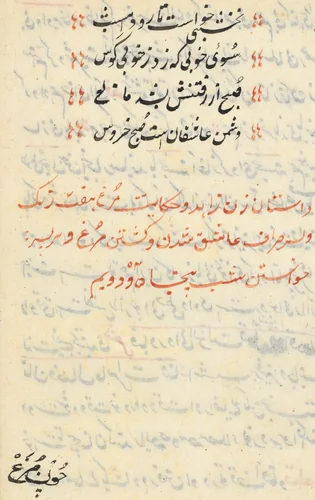 نخشبی خواست تا رود دوست
سوی خوبی که زد ز خوبی کوس
صبح از رفتنش بشد مانع
دشمن عاشقان است صبح خروس
داستان زن زاهد و حکایت مرغ هفت رنک
و پسر صراف عاشق شدن و کشتن مرغ و بر پسر
خواستن شب پنجاه و دویم
چون مرغ